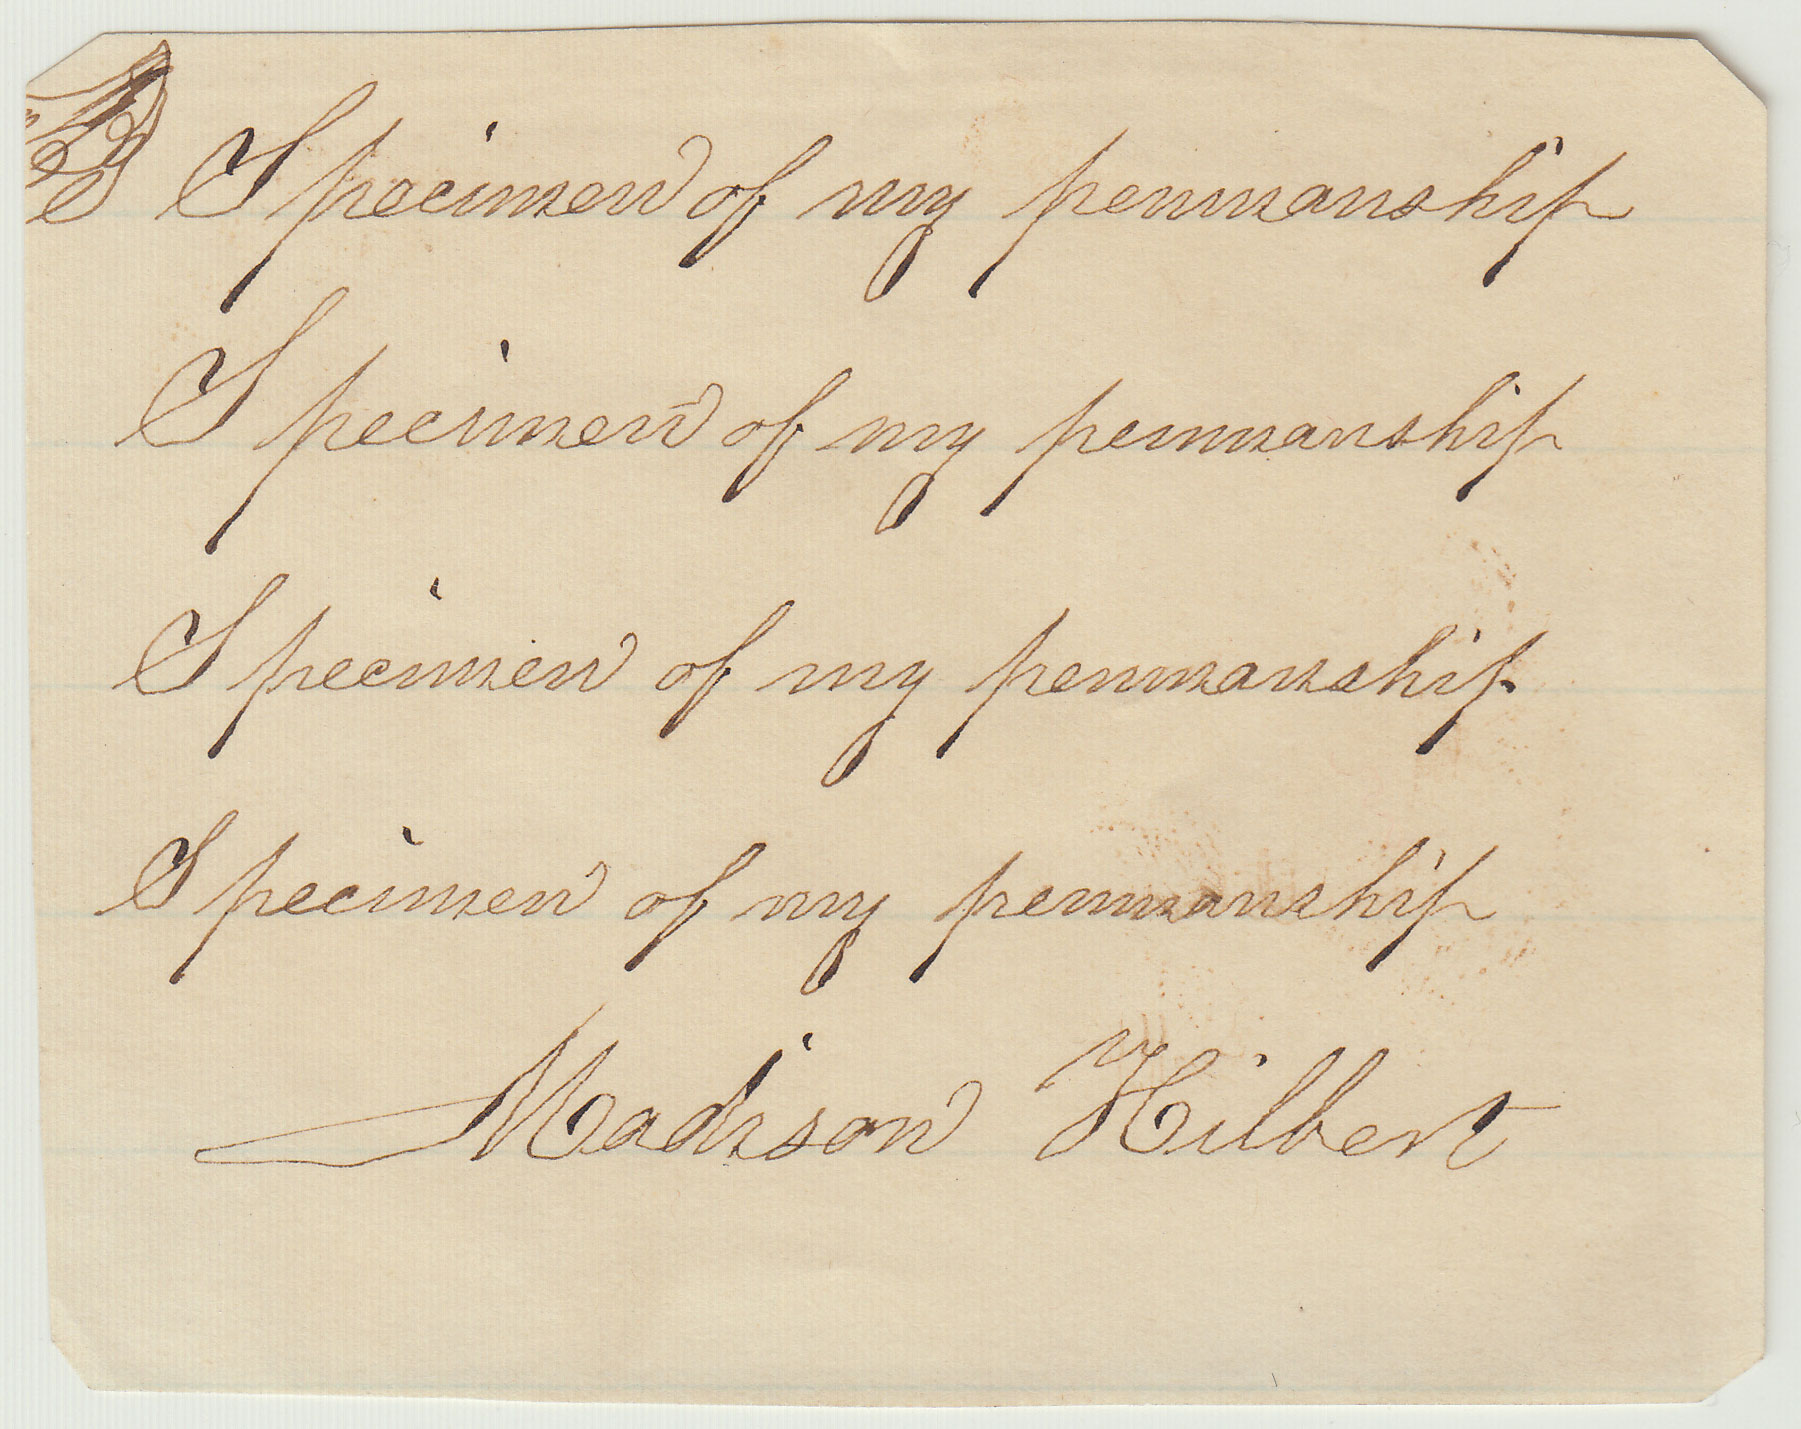 Specimen of my penmanship
Specimen of my penmanship
Specimen of my penmanship
Specimen of my penmanship
Madison Hilbert